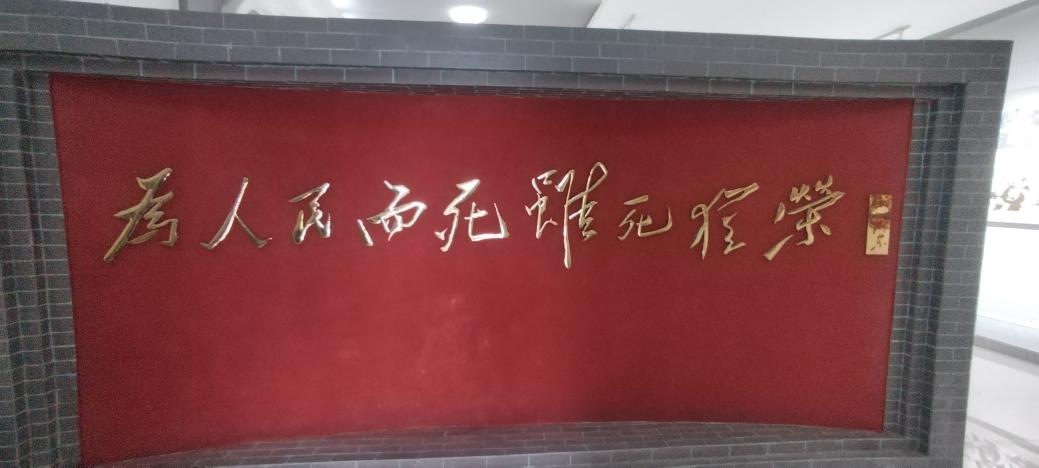 為人民而死雖死猶榮